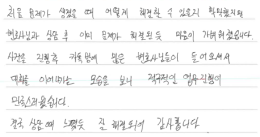 처음 문제가 생겼을 때 어떻게 해결할 수 있을지 막막했지만
변호사님과 상담 후 이미 문제가 해결된 듯 마음이 가벼워졌습니다.
사건을 진행중 카톡방에 많은 변호사님들이 들어오셔서
대화를 이어나가는 모습을 보니 적극적인 업무진행이
만족스러웠습니다.
결국 상담 때 느낌듯 잘 해결되어 감사합니다.